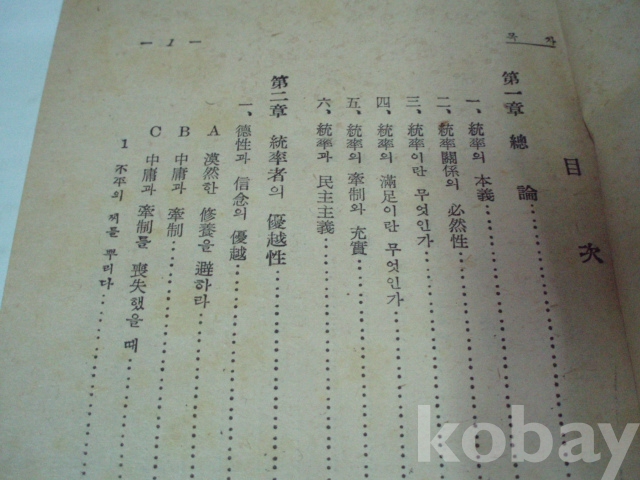 목 차
— 1 —
目 次
第一章 總 論
一、統率의 本義
二、統率關係의 必然性
三、統率이란 무엇인가
四、統率의 滿足이란 무엇인가
五、統率의 牽制와 充實
六、統率과 民主主義
第二章 統率者의 優越性
一、德性과 信念의 優越
A 漠然한 修養을 避하라
B 中庸과 牽制
C 中庸과 牽制를 喪失했을 때
1 不平의 씨를 뿌리다
kobay